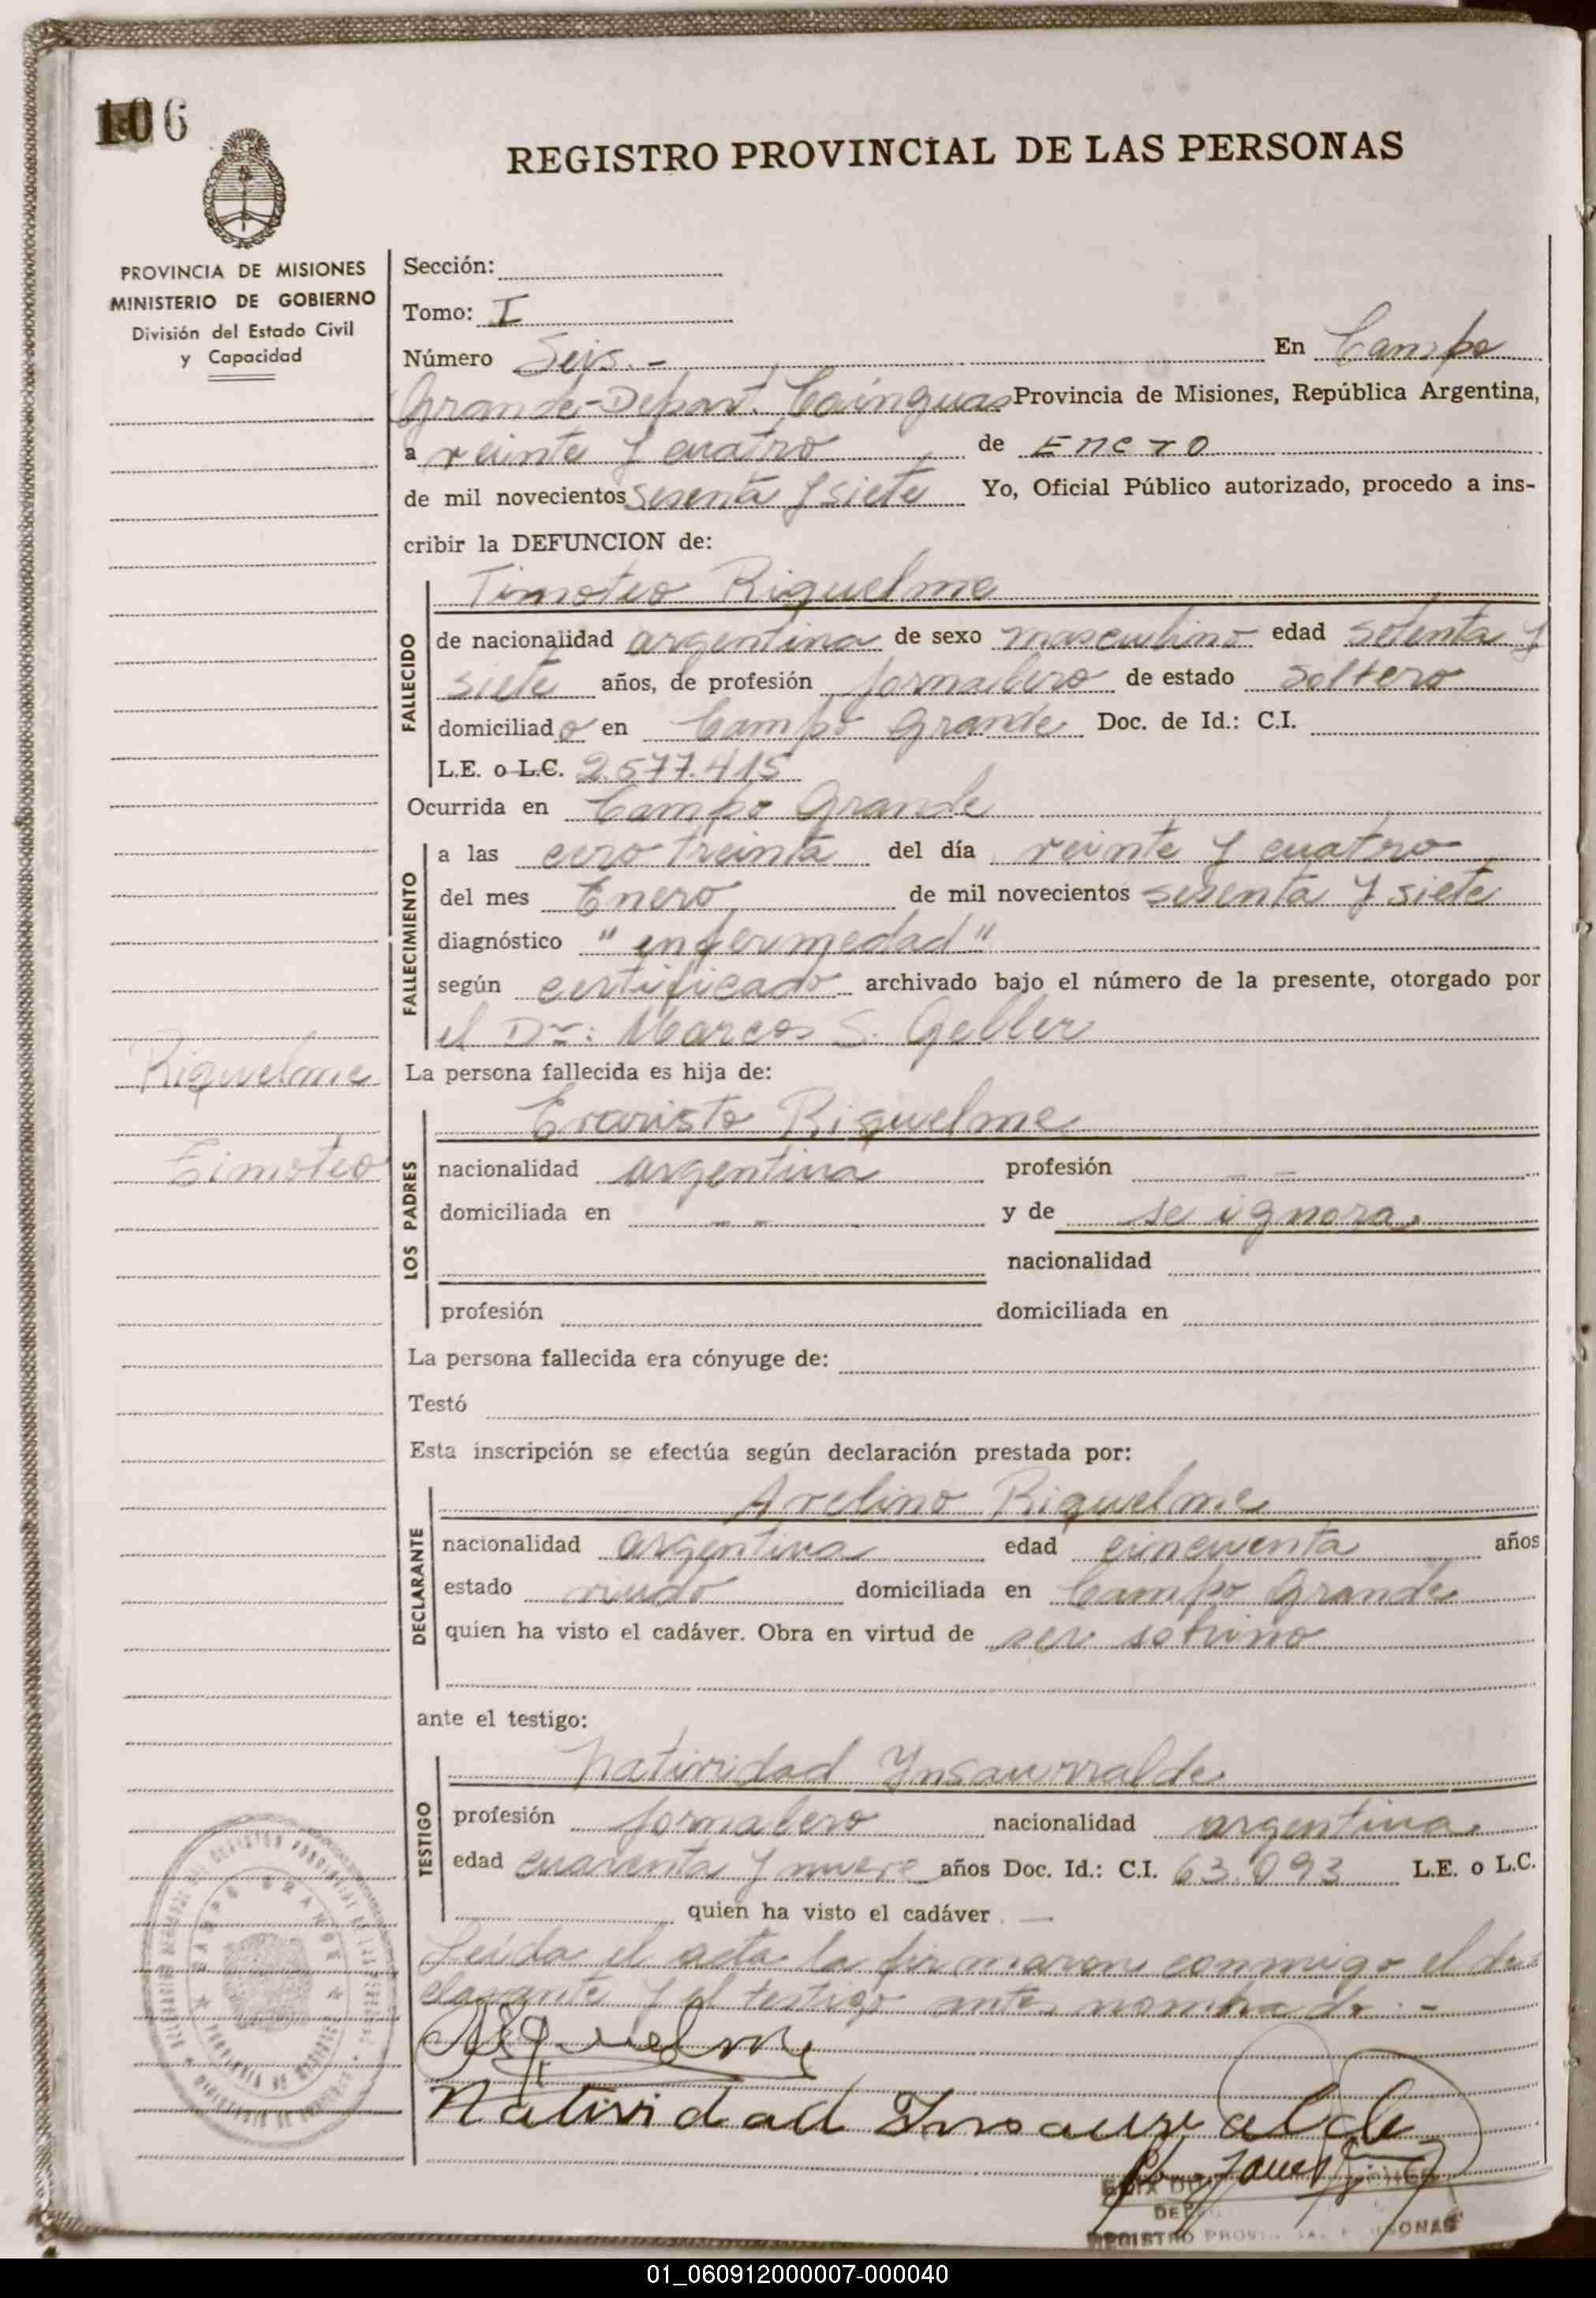 106
REGISTRO PROVINCIAL DE LAS PERSONAS
PROVINCIA DE MISIONES
MINISTERIO DE GOBIERNO
División del Estado Civil
y Capacidad
Sección:
Tomo: I
Número Seis.- En Campo
Grande-Depart. Cainguas Provincia de Misiones, República Argentina,
a veinte y cuatro de Enero
de mil novecientos sesenta y siete Yo, Oficial Público autorizado, procedo a ins-
cribir la DEFUNCION de:
FALLECIDO
Timoteo Riquelme
de nacionalidad argentina de sexo masculino edad setenta y
siete años, de profesión jornalero de estado soltero
domiciliado en Campo Grande Doc. de Id.: C.I.
L.E. o L.C. 2.577.415
Ocurrida en Campo Grande
FALLECIMIENTO
a las cero treinta del día veinte y cuatro
del mes Enero de mil novecientos sesenta y siete
diagnóstico "enfermedad"
según certificado archivado bajo el número de la presente, otorgado por
el Dr: Marcos S. Geller
Riquelme
Timoteo
La persona fallecida es hija de:
LOS PADRES
Evaristo Riquelme
nacionalidad argentina profesión --
domiciliada en -- y de se ignora.
nacionalidad
profesión domiciliada en
La persona fallecida era cónyuge de:
Testó
Esta inscripción se efectúa según declaración prestada por:
DECLARANTE
Avelino Riquelme
nacionalidad argentina edad cincuenta años
estado viudo domiciliada en Campo Grande
quien ha visto el cadáver. Obra en virtud de ser sobrino
ante el testigo:
TESTIGO
Natividad Ynsaurralde
profesión jornalero nacionalidad argentina.
edad cuarenta y nueve años Doc. Id.: C.I. 63.093 L.E. o L.C.
quien ha visto el cadáver —
Leída el acta la firmaron conmigo el de
clarante y el testigo ante nombrado.-
Riquelme
Natividad Insaurralde
REGISTRO PROV
01_060912000007-000040